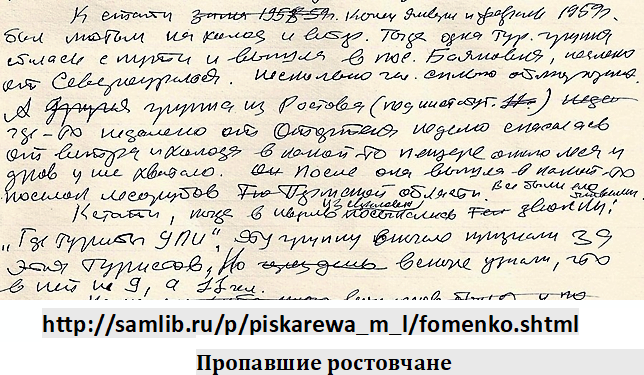 К стати зима 1958-59г. Конец января и февраль 1959г.
был лютым на холод и ветр. Тогда одна тур. группа
сбилась с пути и вышла в пос. Баяновка, недалеко
от Североуральска. Несколько чел. сильно обморожено.
А другая группа из Ростова (пединститут.) недел
где-то недалеко от Отортена неделю спасалась
от ветра и холода в какой-то пещере около леса и
дров у них хватало. Он После она вышла в какой-то
поселок лесорубов Пермской области. Все были
Кстати, тогда в посыпались звонки:
„Где туристы УПИ". Эту группу в начале приняли за
этих туристов. Но через день вскоре узнали, что
в ней не 9, а 11 чел.
http://samlib.ru/p/piskarewa_m_l/fomenko.shtml
Пропавшие ростовчане